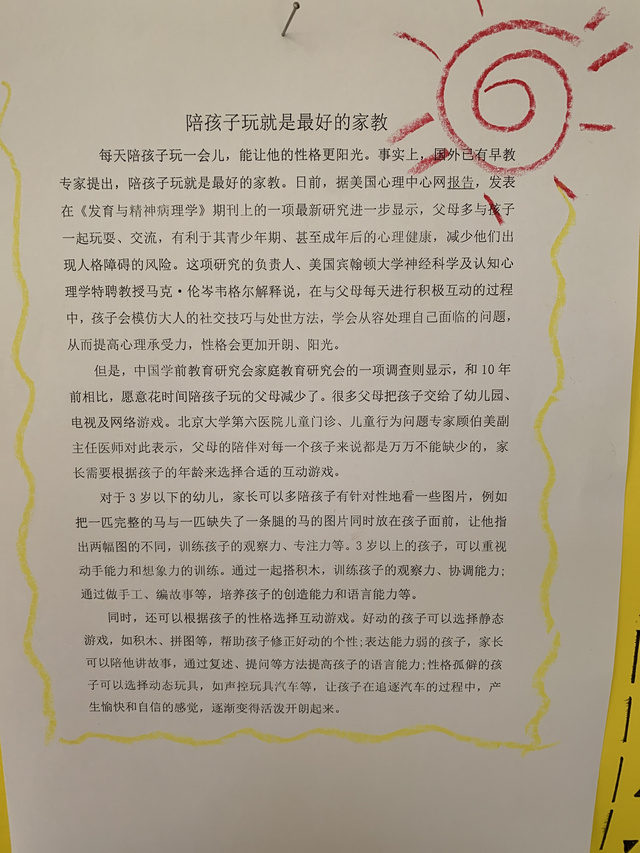 陪孩子玩就是最好的家教
每天陪孩子玩一会儿，能让他的性格更阳光。事实上，国外已有早教
专家提出，陪孩子玩就是最好的家教。日前，据美国心理中心网报告，发表
在《发育与精神病理学》期刊上的一项最新研究进一步显示，父母多与孩子
一起玩耍、交流，有利于其青少年期、甚至成年后的心理健康，减少他们出
现人格障碍的风险。这项研究的负责人、美国宾翰顿大学神经科学及认知心
理学特聘教授马克·伦岑韦格尔解释说，在与父母每天进行积极互动的过程
中，孩子会模仿大人的社交技巧与处世方法，学会从容处理自己面临的问题，
从而提高心理承受力，性格会更加开朗、阳光。
但是，中国学前教育研究会家庭教育研究会的一项调查则显示，和 10 年
前相比，愿意花时间陪孩子玩的父母减少了。很多父母把孩子交给了幼儿园、
电视及网络游戏。北京大学第六医院儿童门诊、儿童行为问题专家顾伯美副
主任医师对此表示，父母的陪伴对每一个孩子来说都是万万不能缺少的，家
长需要根据孩子的年龄来选择合适的互动游戏。
对于 3 岁以下的幼儿，家长可以多陪孩子有针对性地看一些图片，例如
把一匹完整的马与一匹缺失了一条腿的马的图片同时放在孩子面前，让他指
出两幅图的不同，训练孩子的观察力、专注力等。3 岁以上的孩子，可以重视
动手能力和想象力的训练。通过一起搭积木，训练孩子的观察力、协调能力;
通过做手工、编故事等，培养孩子的创造能力和语言能力等。
同时，还可以根据孩子的性格选择互动游戏。好动的孩子可以选择静态
游戏，如积木、拼图等，帮助孩子修正好动的个性;表达能力弱的孩子，家长
可以陪他讲故事，通过复述、提问等方法提高孩子的语言能力;性格孤僻的孩
子可以选择动态玩具，如声控玩具汽车等，让孩子在追逐汽车的过程中，产
生愉快和自信的感觉，逐渐变得活泼开朗起来。